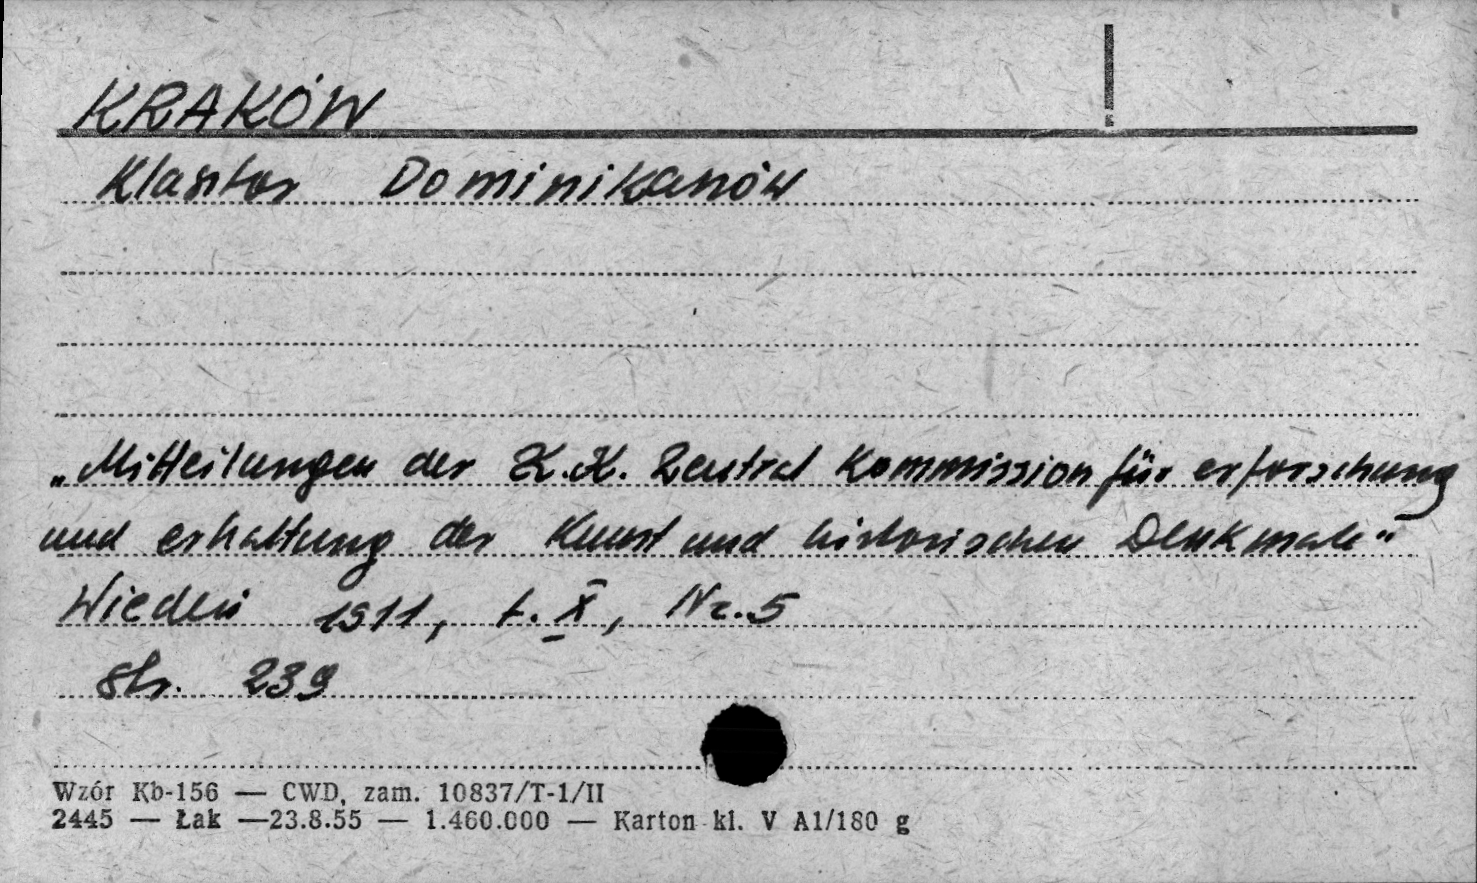 KRAKÓW
Klasztor Dominikanów
„Mitteilungen der K.K. Zentral Kommission für erforschung
und erhaltung der Kunst und historischen Denkmale"
Wiedeń 1911, t. X, Nr. 5
str. 239
Wzór Kb-156 — CWD, zam. 10837/T-1/II
2445 — Łak —23.8.55 — 1.460.000 — Karton kl. V A1/180 g